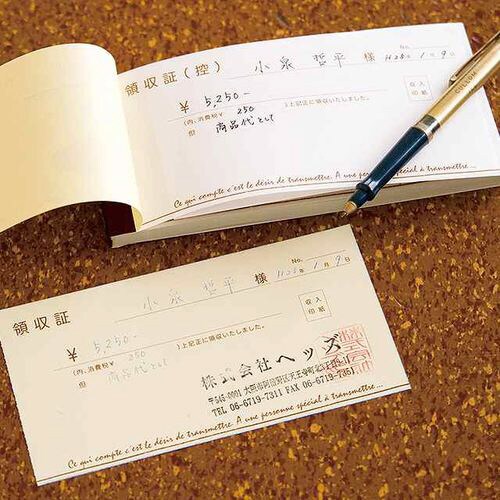 領収証(控) 小泉 哲平 様 H26年 1月 9日
No.
¥ 5,250-
(内、消費税¥ 250 )上記正に領収いたしました。
但 商品代として
収入
印紙
Ce qui compte c'est le désir de transmettre. A une personne spécial à transmettre...
CULLOM
No.
領収証 小泉 哲平 様 H26年 1月 9日
¥ 5,250-
(内、消費税¥ 250 )上記正に領収いたしました。
但 商品代として
収入
印紙
株式会社ヘッズ
〒545-0001 大阪市阿倍野区天王寺町北
TEL 06-6719-7311 FAX 06-6719-7351
Ce qui compte c'est le désir de transmettre. A une personne spécial à transmettre...